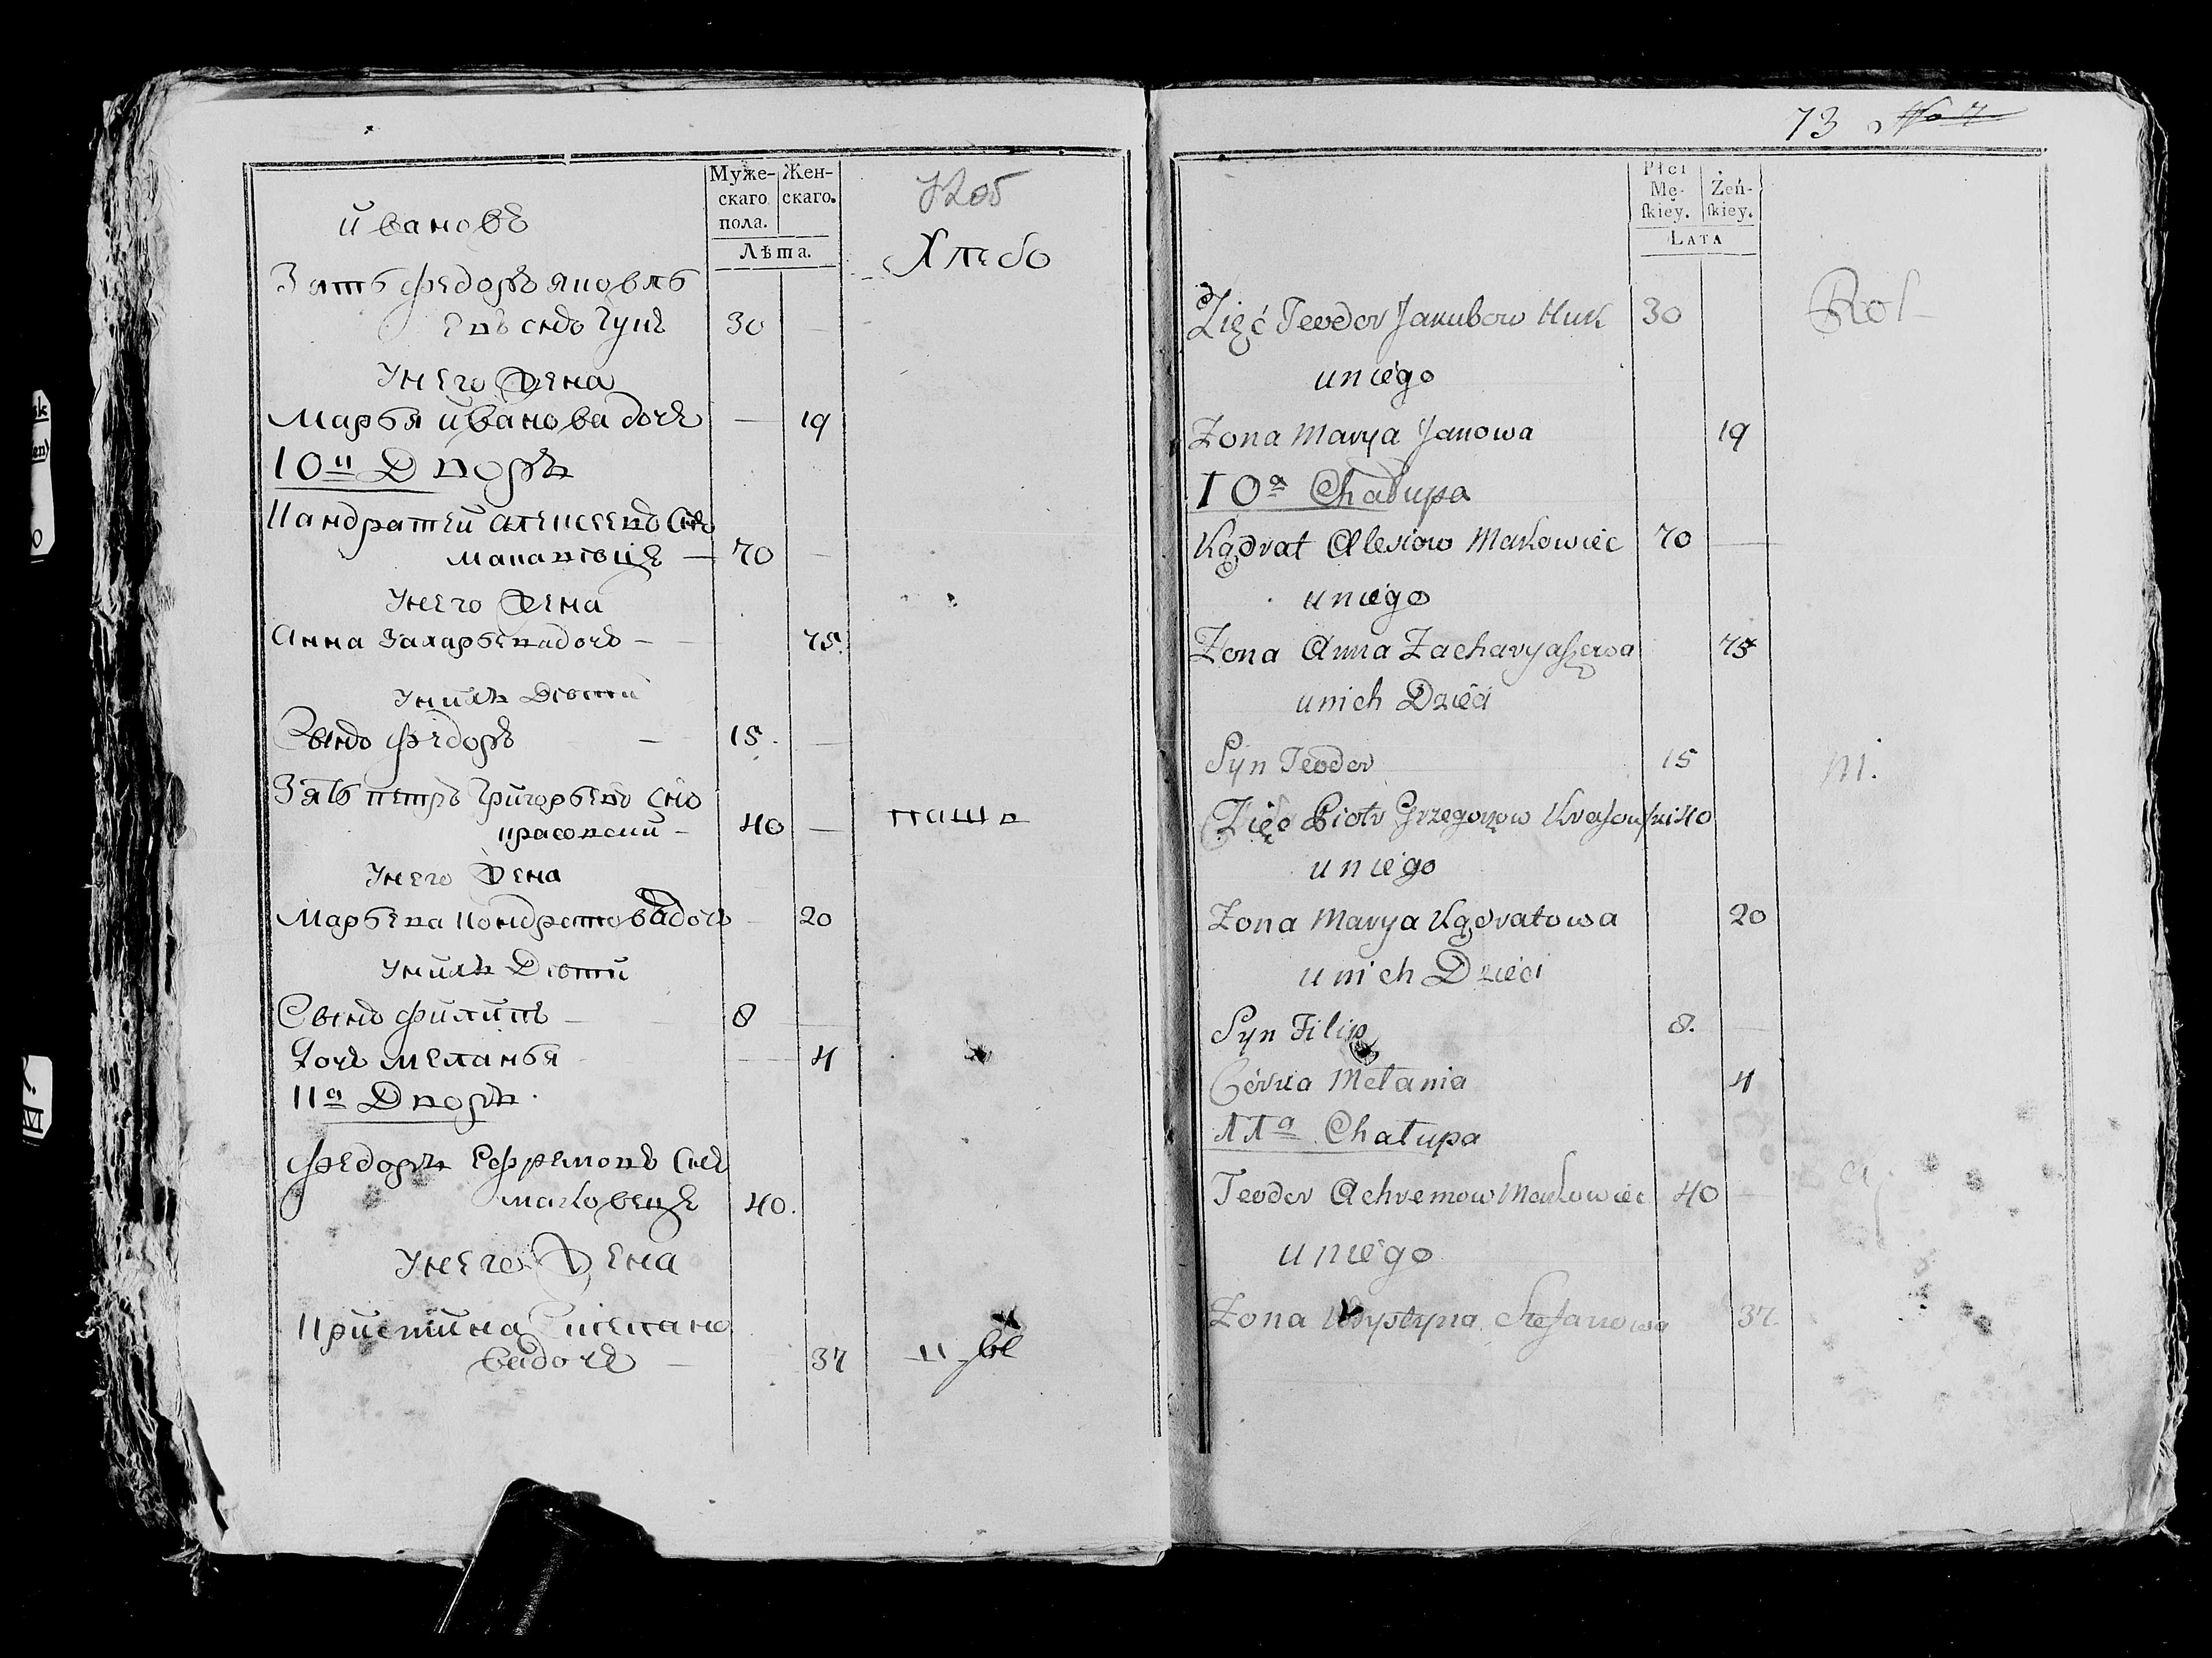 Муже-
скаго
пола.
Жен-
скаго.
Лѣта.
ивановъ
Хлебо
Зять Федоръ яковль
евъ снъ Гукъ 30 —
У него Жена
Марья иванова дочь — 19
10й Дворъ
Кандратей алексеевъ снъ
Маковецъ — 70 —
У него Жена
Анна Захарьева дочь — 75.
У нихъ Дѣти
Сынъ Федоръ — 15. —
Зять петръ Григорьевъ снъ
красовский — 40 —
паш
У него Жена
Марьева Кондратова дочь — 20
У нихъ Дѣти
Сынъ филипъ — 8 —
Дочь меланья — 4
11й Дворъ.
Федоръ Ефремовъ снъ
маковецъ 40.
У него Жена
Кристина Степано
ва дочь — 37
73
Płci
Mę-
ſkiey.
Żeń-
ſkiey.
LATA
Zięć Teodor Jakubow Huk 30
Rol
u niego
Zona Marya Janowa 19
10a Chałupa
Kądrat Alexiow Makowiec 70 —
u niego
Zona Anna Zacharyaszewa 75
u nich Dzieci
Syn Teodor 15
ni.
Zięć Piotr Grzegorzow Krasowski 40
u niego
Zona Marya Kądratowa 20
u nich Dzieci
Syn Filip 8. —
Córka Mełania 4
11a Chałupa
Teodor Achremow Makowiec 40 —
u niego
Zona Krystyna Stefanowa 37.